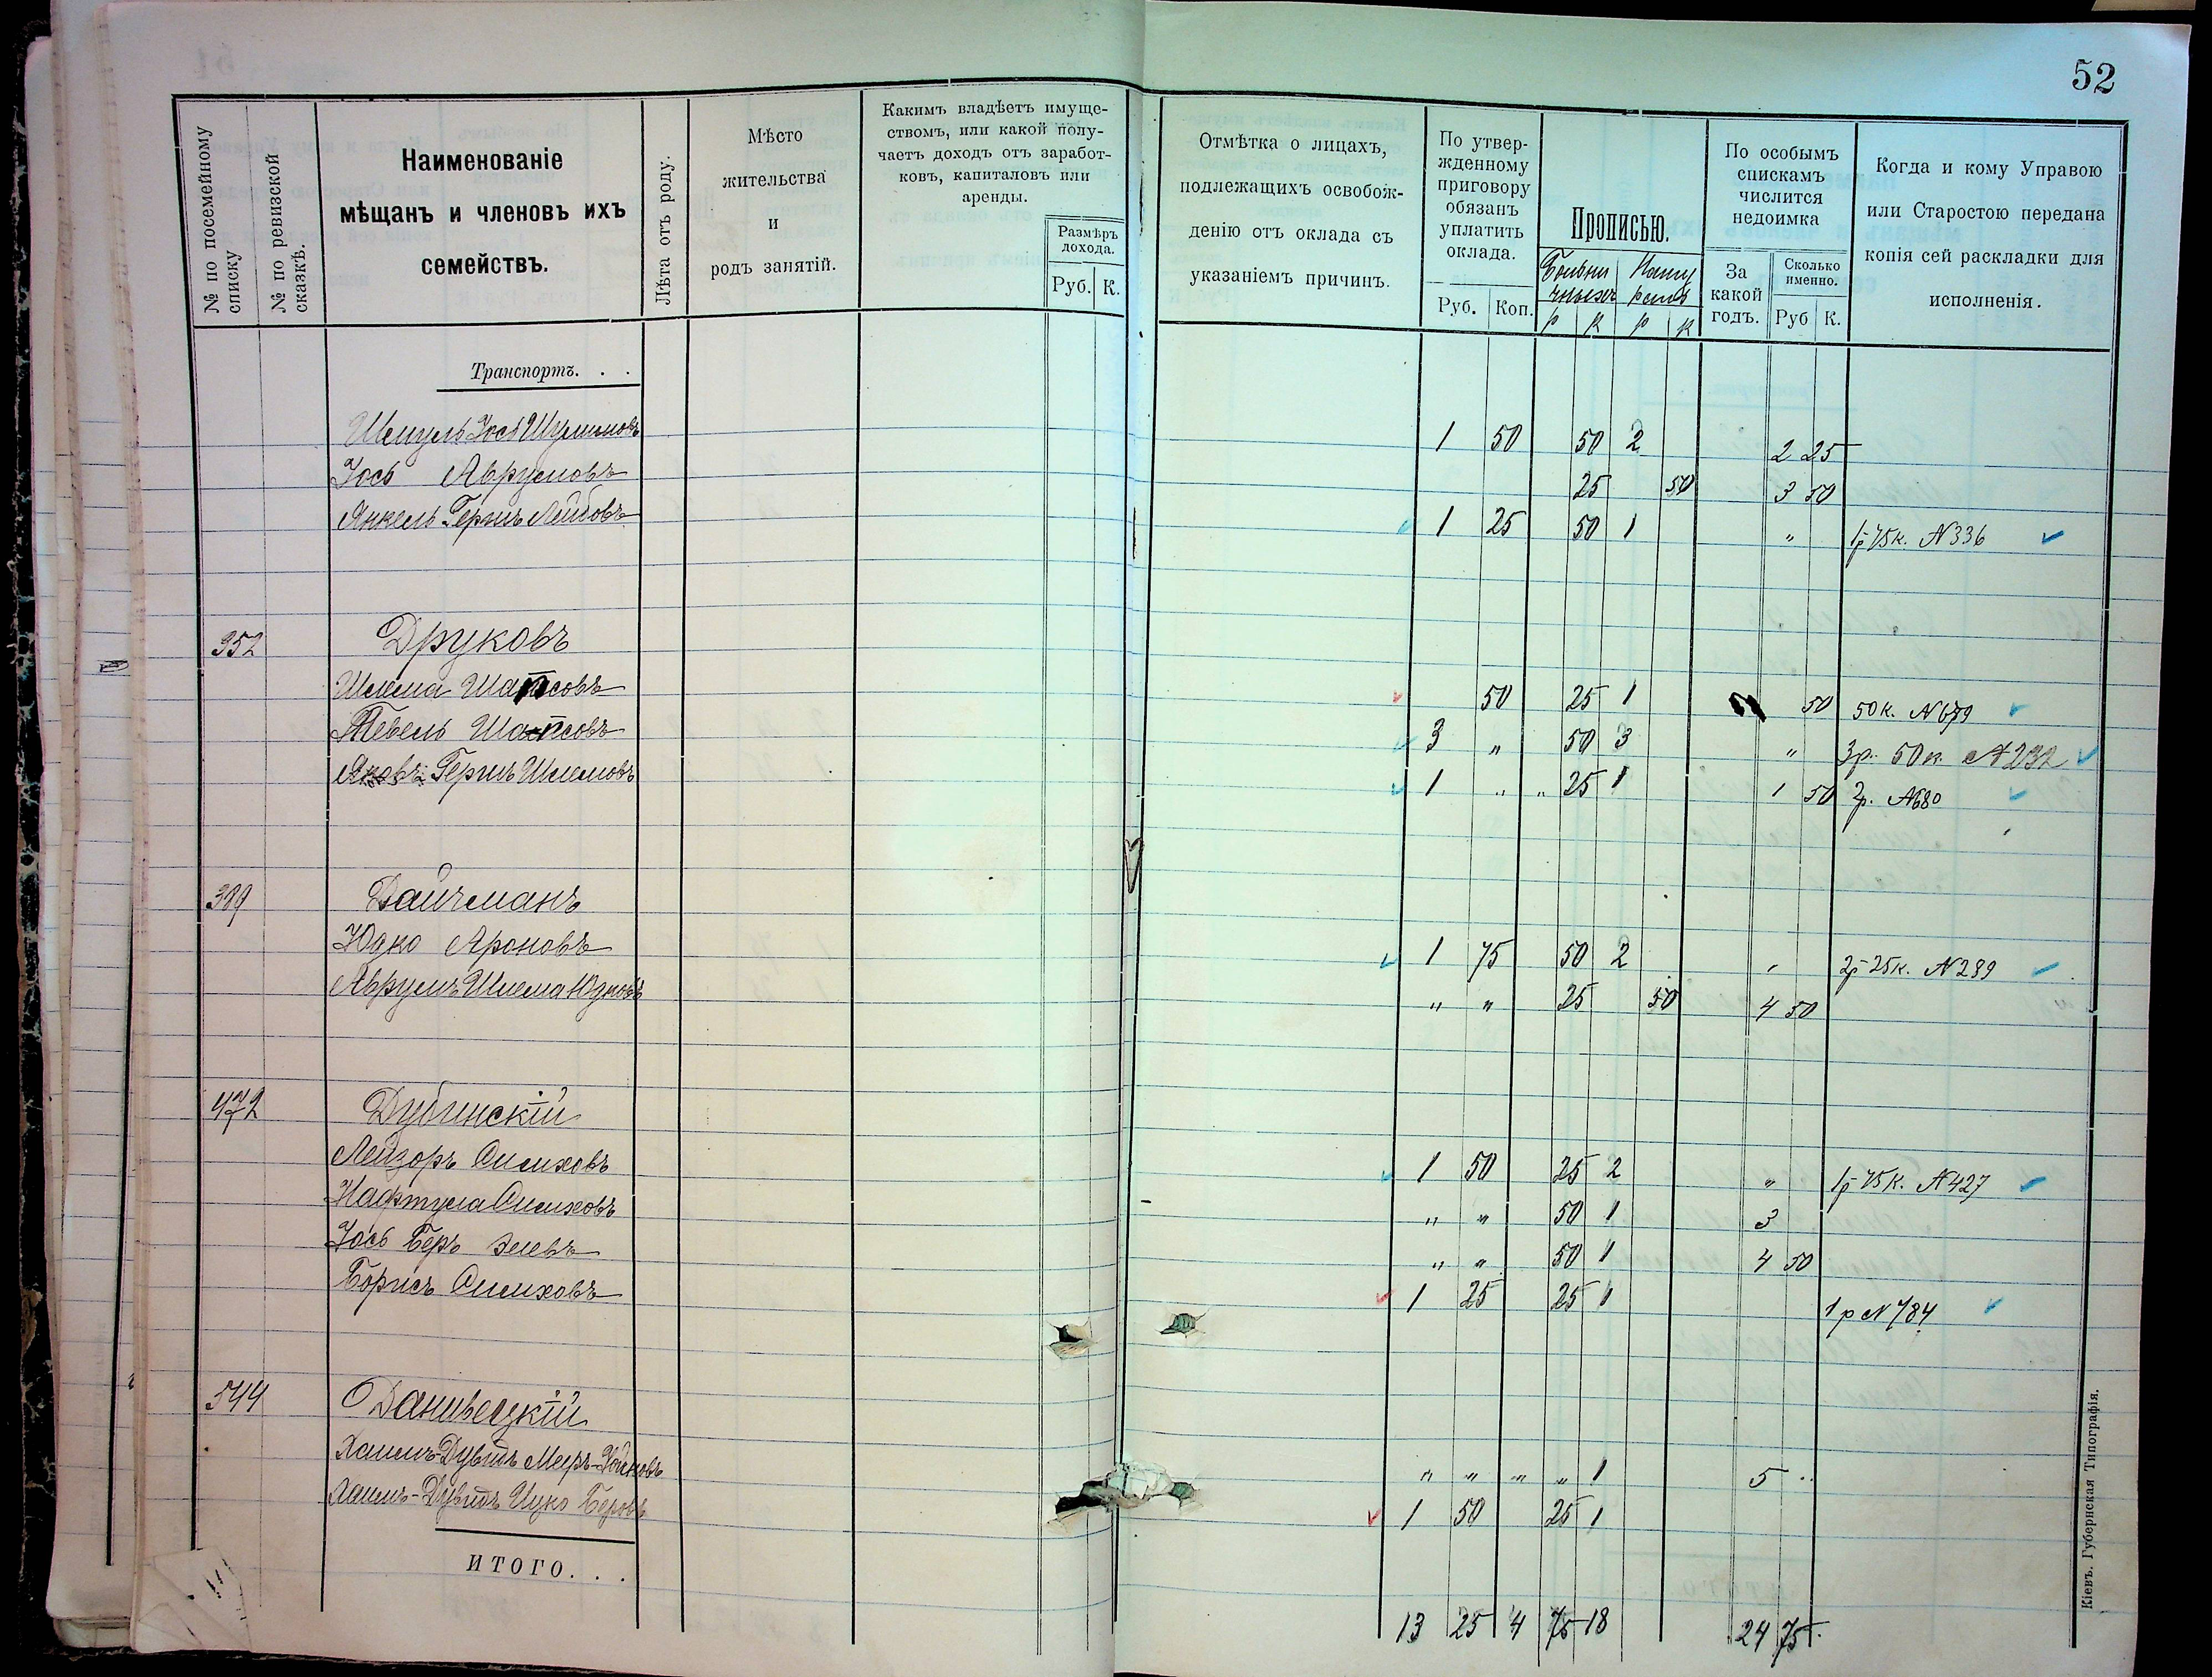 52
№ по посемейному списку
№ по ревизской сказкѣ.
Наименованіе
мѣщанъ и членовъ ихъ
семействъ.
Лѣта отъ роду.
Мѣсто
жительства
и
родъ занятій.
Какимъ владѣетъ имуще-
ствомъ, или какой полу-
чаетъ доходъ отъ заработ-
ковъ, капиталовъ или
аренды.
Размѣръ
дохода.
Руб. К.
Отмѣтка о лицахъ,
подлежащихъ освобож-
денію отъ оклада съ
указаніемъ причинъ.
По утвер-
жденному
приговору
обязанъ
уплатить
оклада.
Руб. Коп.
Прописью.
р к р к
По особымъ
спискамъ
числится
недоимка
За
какой
годъ.
Сколько
именно.
Руб К.
Когда и кому Управою
или Старостою передана
копія сей раскладки для
исполненія.
Транспортъ. . .
Шмуль Іось Шулимовъ 1 50 50 2 2 25
Іось Аврумовъ 25 50 3 50
Янкель Гершъ Лейбовъ 1 25 50 1 " 1р 75к. N 336
352 Друковъ
Шлема Шапсовъ 50 25 1 50 50к. N 679
Тевель Шапсовъ 3 " 50 3 " 3р. 50к. N 292
Гершъ Шлемовъ 1 " " 25 1 1 50 2р. N 680
389 Дайчманъ
Юдко Ароновъ 1 75 50 2 " 2р 25к. N 289
Аврумъ Шлема Юдковъ " " 25 50 4 50
472 Дубинскій
Лейзоръ Симховъ 1 50 25 2 " 1р 75к. N 427
Нафтула Симховъ " " 50 1 3
Іось Беръ Элевъ " " 50 1 4 50
Борисъ Симховъ 1 25 25 1 1 р N 784
544 Данивецкій
Хаимъ-Дувидъ Меръ- " " " " 1 5 "
Хаимъ-Дувидъ Ицко Беровъ 1 50 25 1
ИТОГО. . .
13 25 4 75 18 24 75
Кіевъ. Губернская Типографія.